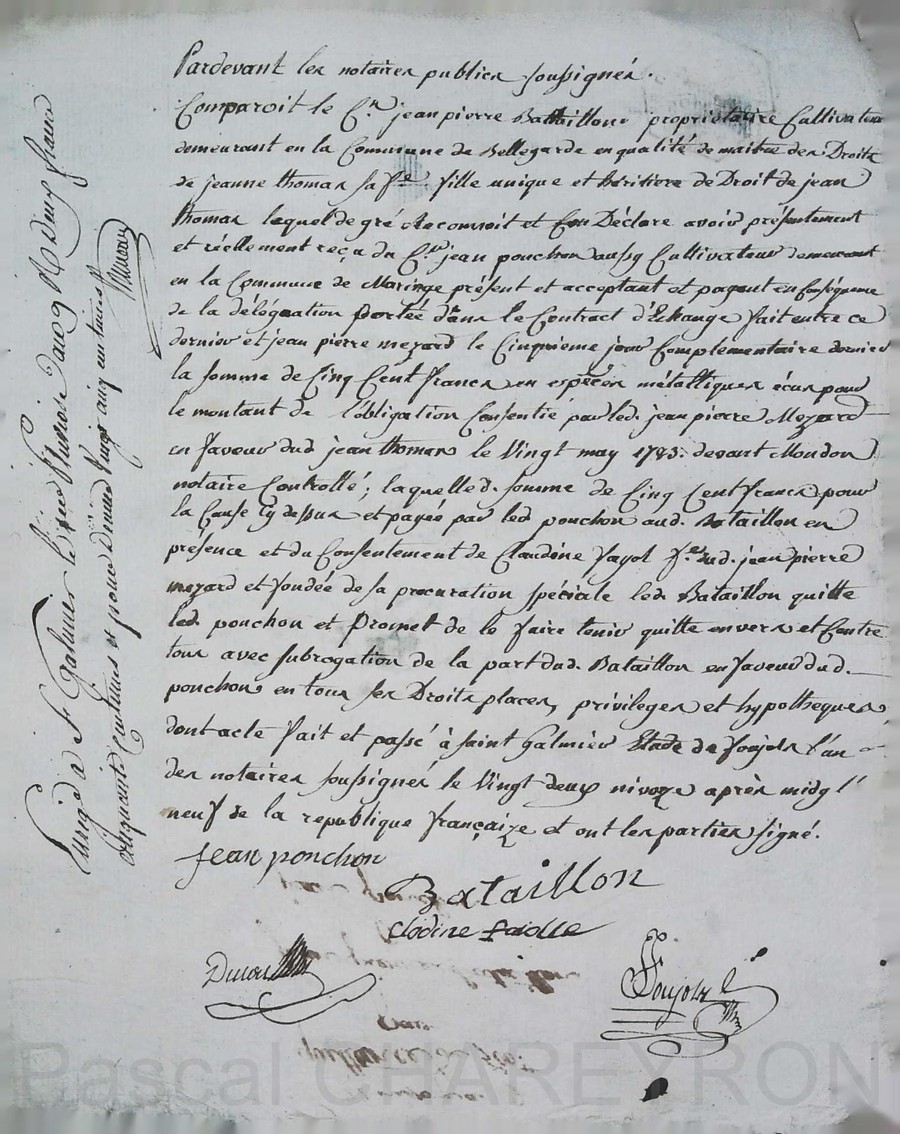 Pardevant les notaires publics soussignés.
Comparoit le Cn. jean pierre Bataillon proprietaire Cultivateur
demeurant en la Commune de Bellegarde en qualité de maitre des Droits
de jeanne thomas sa fe. fille unique et héritière de Droit de jean
thomas lequel de gré Reconnoit et Déclare avoir présentement
et réellement reçu du Cn. jean ponchon aussy Cultivateur demeurant
en la Commune de Maringe présent et acceptant et payant en Conséquence
de la délégation portée dans le Contract d'Echange fait entre ce
dernier et jean pierre mezard le Cinquieme jour Complementaire dernier
la somme de Cinq Cent francs en espèces métalliques écus pour
le montant de l'obligation Consentie par led. jean pierre Mezard
en faveur dud jean thomas le Vingt may 1783. devant Moudon
notaire Controllé; laquelle d. somme de Cinq Cent francs pour
la Cause Cy dessus et payée par led ponchon aud. Bataillon en
présence et du Consentement de Claudine fayol fe. dud. jean pierre
mezard et fondée de sa procuration spéciale led. Bataillon quitte
led. ponchon et Promet de le faire tenir quitte envers et Contre
tous avec subrogation de la part dud. Bataillon en faveur dud.
ponchon en tous ses Droits places, privileges et hypotheques
dont acte fait et passé à saint Galmier Etude de foujols l'un
des notaires soussignés le Vingt deux nivoze après midy l'
neuf de la republique françaize et ont les parties signé.
jean ponchon
Bataillon
clodine faiolle
foujols
Enrigé à St Galmier le nivose an 9 R deux francs
cinquante Centimes et pour Dixme Vingt cinq centimes
Pascal CHAREYRON